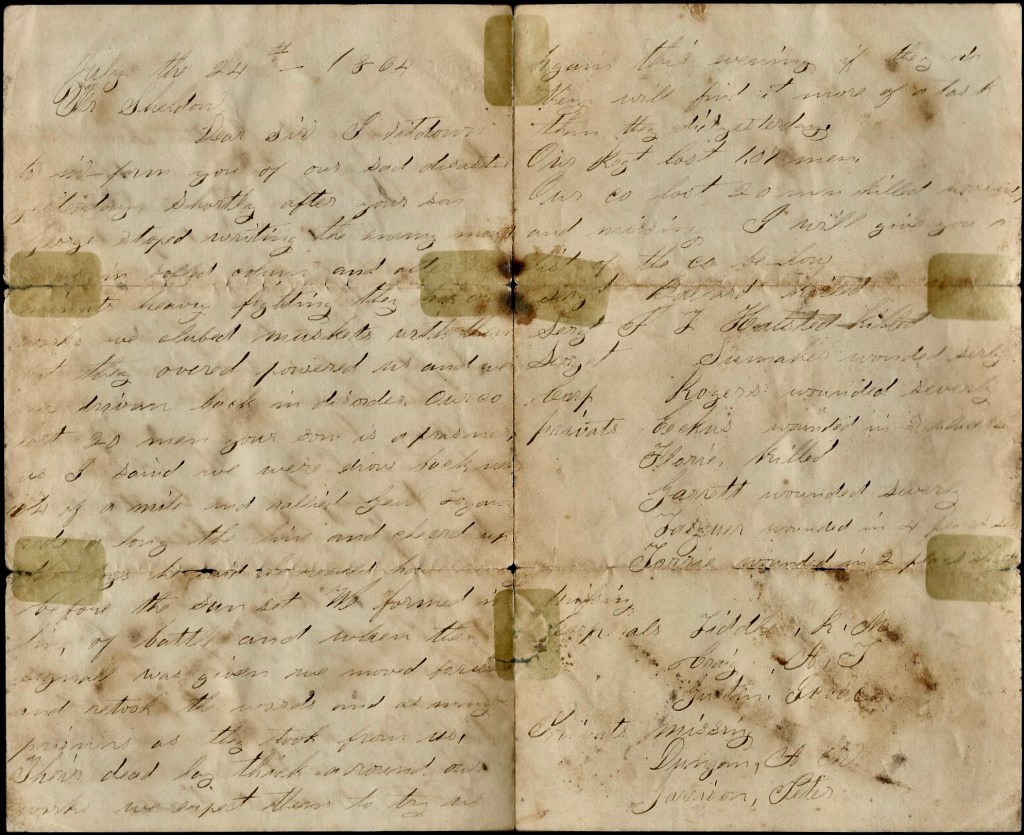 July the 24th 1864
Mr Sheldon
Dear Sir I sitdown
to in form you of our sad disaster
yesterday shortly after your son
George stoped writing the enemy
in solled colums and
heavy fighting they
works we clubed muskets with them
but they overed powered us and we
were drivan back in disorder Our co
lost 20 men your son is a prisner,
as I said we were drove back
1/4 of a mile and rallied Genl Logan
rode a long the line and cheard up
the boys he said we would have
before the sun set We formed in
line of battle and when the
signal was given we moved forward
and retook the works and as many
prisners as they took from us,
Their dead lay thick around our
works we expect them to try us
again this evening if they do
they will find it more of a task
than they did yesterday
Our Regt lost 107 men
Our co lost 20 men killed wound
and missing I will give you a
list of the co be low
Sergt
Sergt F J Halsted killed
Sergt Sumaker wounded serly
Corp Rogers wounded severly
privats wounded in 2 places
Florre, killed
Garrett wounded severly
wounded in 2 places
Torrie wounded in 2 places
Missing
Corpals Fiddler, R. M
Craig H. T

Privats missing
Dungan, A
Garrison, Peter